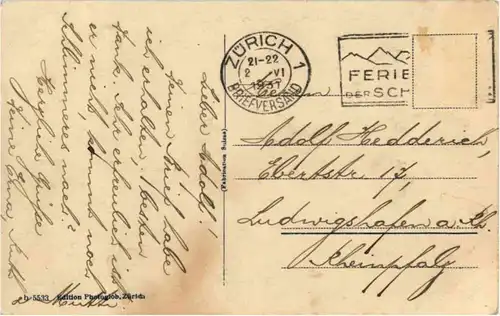 ZÜRICH 1
21-22
2 VI
1937
BRIEFVERSAND
FERIE
DER SCH
Lieber Adolf!
Deinen Brief habe
ich erhalten, besten
Dank. Ihr
er nicht, kommt noch
nach?
Herzliche Grüsse
Deine
Mutti
(Fabrication Suisse)
Adolf Hedderich,
Ebertstr. 17,
Ludwigshafen a. Rh.
Rheinpfalz
b-5533 Edition Photoglob, Zürich